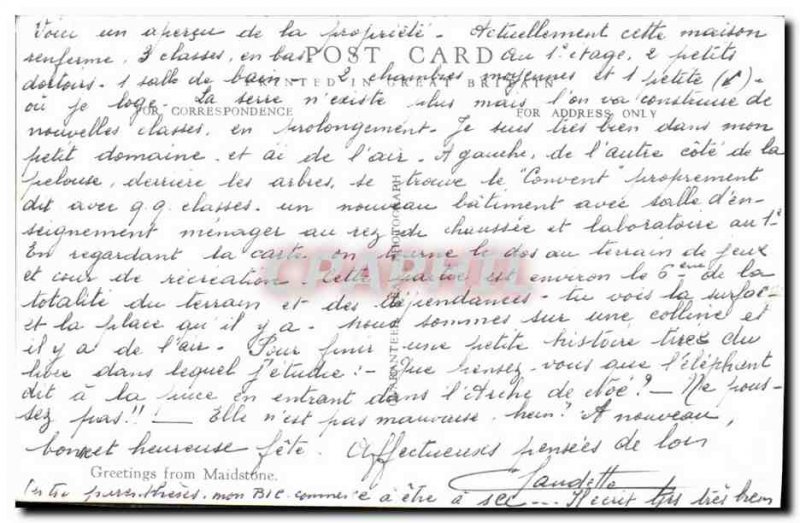 Voici un aperçu de la propriété. Actuellement cette maison
renferme, 3 classes, en bas. Au 1° étage, 2 petits
POST CARD
dortoirs. 1 salle de bain - 2 chambres moyennes et 1 petite
PRINTED IN GREAT BRITAIN
où je loge. La serre n'existe plus mais l'on va construire de
FOR CORRESPONDENCE
FOR ADDRESS ONLY
nouvelles classes, en prolongement. Je suis très bien dans mon
petit domaine et ai de l'air. A gauche, de l'autre côté de la
pelouse, derrière les arbres, se trouve le "Convent" proprement
dit avec q.q. classes. un nouveau bâtiment avec salle d'en-
seignement ménager au rez de chaussée et laboratoire au 1°
En regardant la carte on tourne le dos au terrain de jeux
et cour de récréation. Cette partie est environ le 6ème de la
totalité du terrain et des dépendances. tu vois la surface
et la place qu'il y a. nous sommes sur une colline et
il y a de l'air. Pour finir une petite histoire tirée du
livre dans lequel j'étudie :- Que pensez-vous que l'éléphant
dit à la puce en entrant dans l'Arche de Noé? - Ne pous-
sez pas!! - Elle n'est pas mauvaise, hein? A nouveau,
bonne et heureuse fête. Affectueuses pensées de loin
Claudette
Greetings from Maidstone.
Entre parenthèses, mon BIC commence à être à sec... Il écrit très bien
GUARANTEED REAL PHOTOGRAPH
CPARAMA